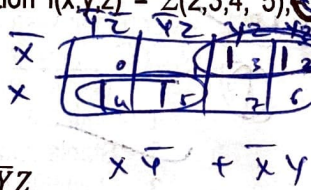 f(x,y,z) = Σ(2,3,4,5),
Y̅Z̅ Y̅Z YZ YZ̅
X̅ 0 1 3 1 2
X 1 4 1 5 7 6
x y̅ + x̅ y
Y̅Z